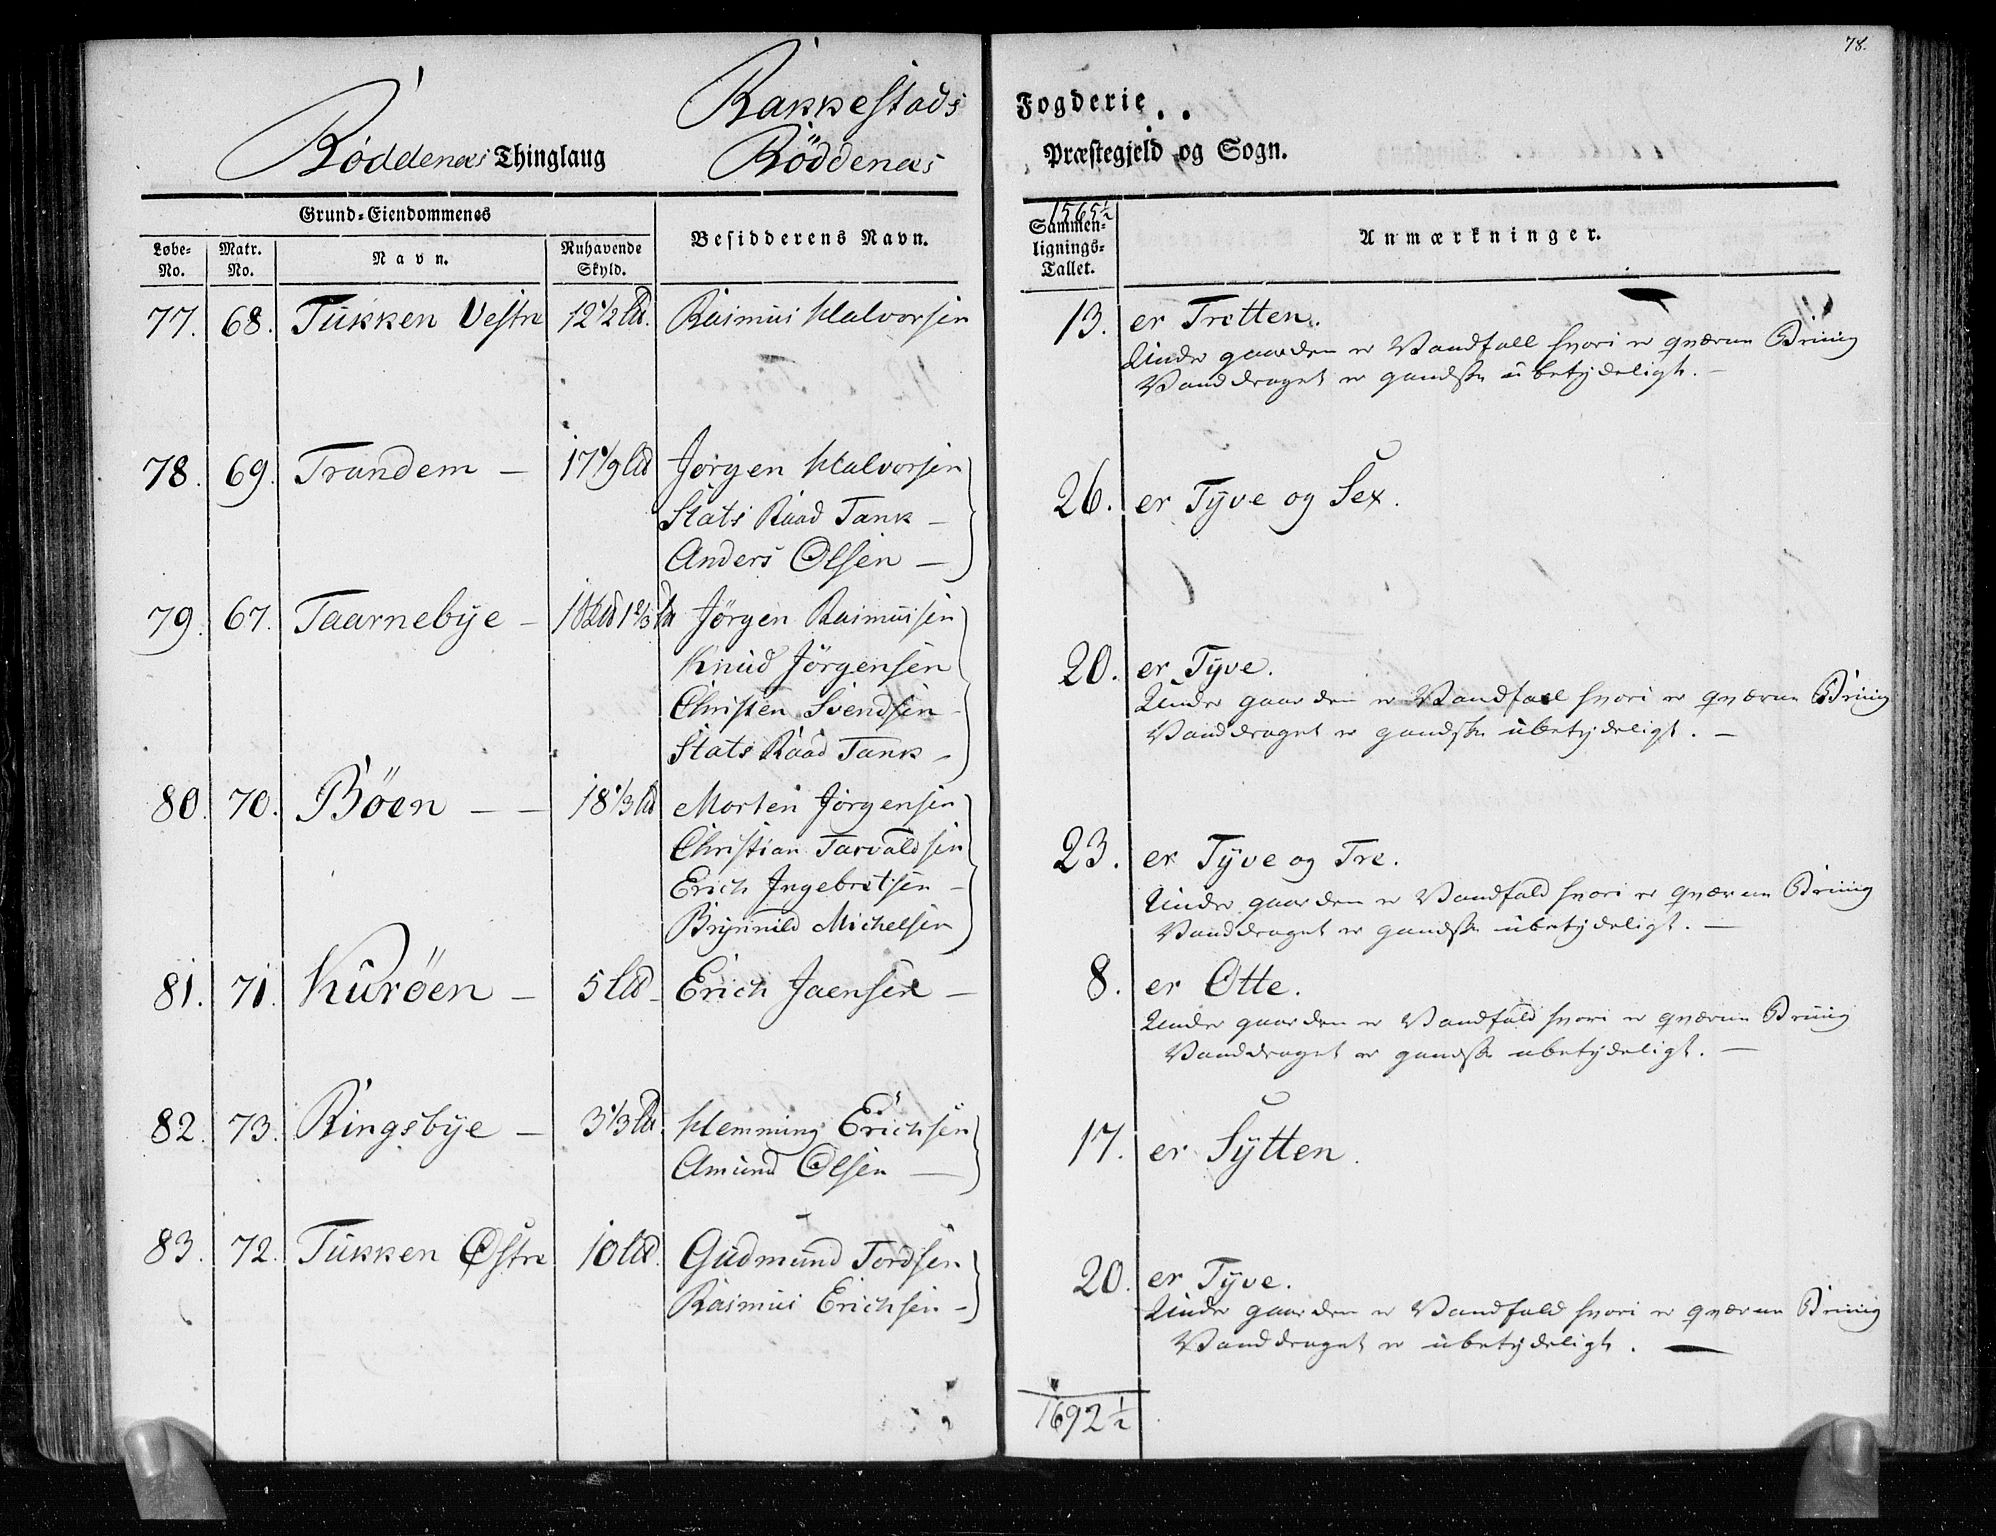 78.
Rakkestads Fogderie.
Röddenæs Thinglaug Röddenæs Præstegjeld og Sogn.
Grund-Eiendommenes
Løbe-No. Matr. No. Navn. Nuhavende Skyld. Besidderens Navn. Sammenlignings-Tallet. Anmærkninger.
1565½
77. 68. Tükken Vestre 12½ Ld. Rasmus Halvorsen 13. er Tretten.
Under gaarden er Vandfall hvori er qværne Brüüg
Vanddraget er gandske übetydeligt. —
78. 69. Trandem — 17 1/9 Ld Jørgen Halvorsen
Stats Raad Tank —
Anders Olsen —
26. er Tÿve og Sex.
79. 67. Taarnebÿe — Jørgen Rasmüssen
Knüd Jörgensen
Christen Svendsen
Stats Raad Tank —
20. er Tÿve.
Under gaarden er Vandfall hvori er qværne Brüüg
Vanddraget er gandske übetydeligt. —
80. 70. Böen — — 18 1/3 Ld Morten Jörgensen
Christian Tarvaldsen
Erich Ingebretsen —
Brÿnnild Michelsen
23. er Tÿve og Tre.
Under gaarden er Vandfald hvori er qværne Brüüg
Vanddraget er gandske übetydeligt. —
81. 71. Kuröen — 5 Ld — Erich Jaensen — 8. er Otte.
Under gaarden er Vandfald hvori er qværne Brüüg
Vanddraget er gandske ubetydeligt. —
82. 73. Ringsbÿe — 3 1/3 Ld. Hemming Erichsen
Amünd Olsen —
17. er Sÿtten.
83. 72. Tükken Østre 10 Ld. Gudmünd Tordsen
Rasmüs Erichsen —
20. er Tÿve.
Under gaarden er Vandfald hvori er qværne Brüüg
Vanddraget er übetydeligt. —
1692½